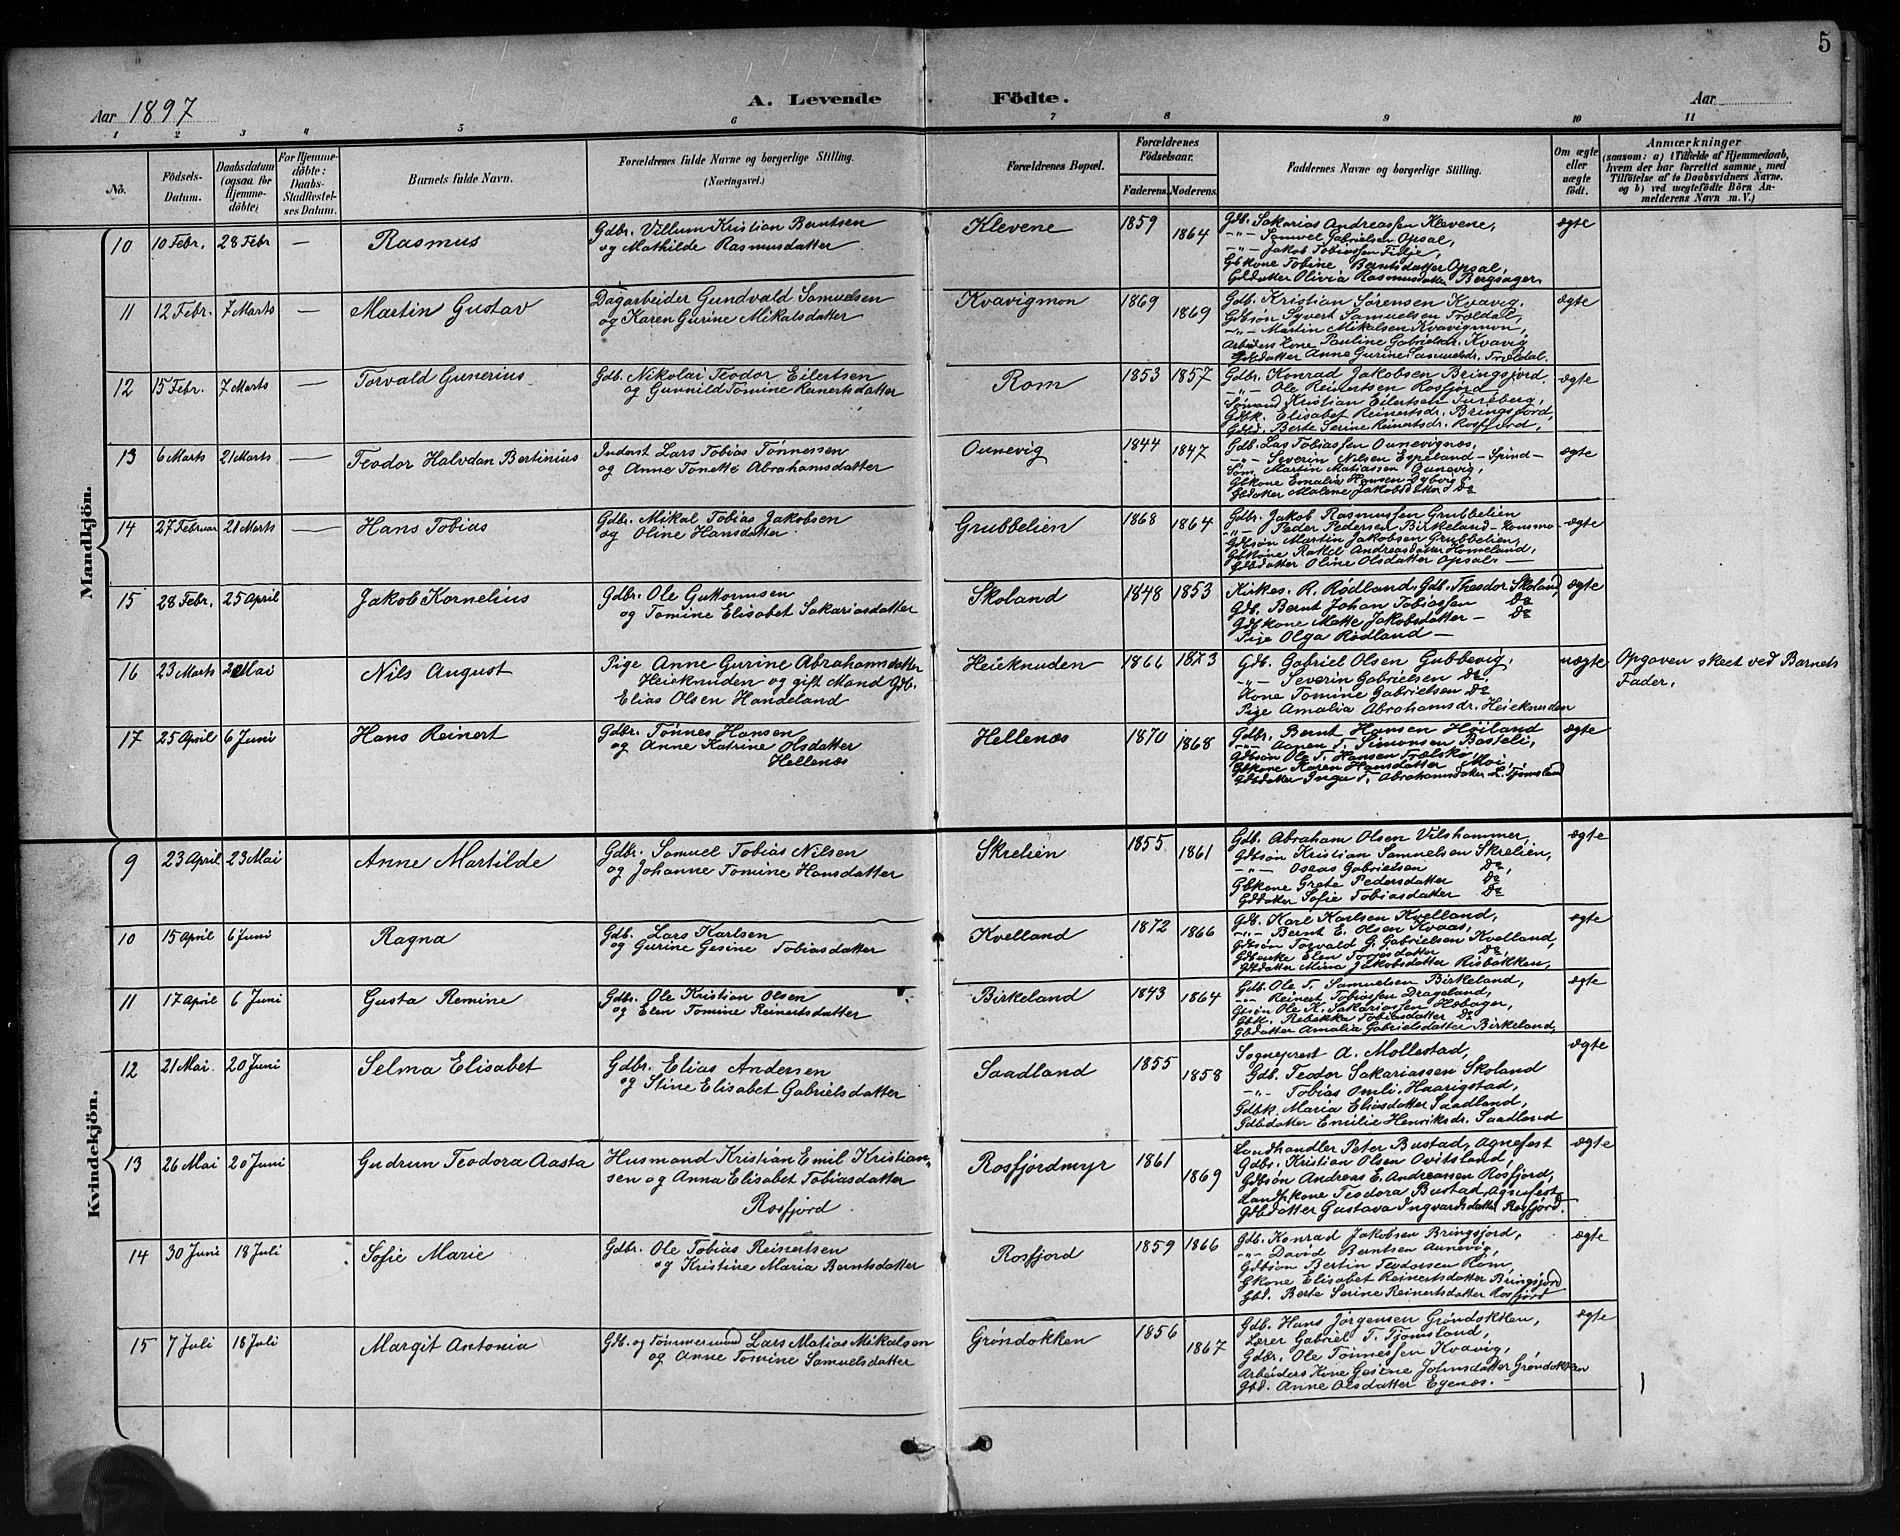 5
Aar 1897
A. Levende
Födte.
Aar
1 2 3 4 5 6 7 8 9 10 11
No.
Födsels-Datum.
Daabsdatum (ogsaa for Hjemme-döbte)
For Hjemme-döbte: Daabs-Stadfæstel-ses Datum.
Barnets fulde Navn.
Forældrenes fulde Navne og borgerlige Stilling. (Næringsvei.)
Forældrenes Bopæl.
Forældrenes Födselsaar.
Faderens. Moderens.
Faddernes Navne og borgerlige Stilling.
Om ægte eller uægte födt.
Anmærkninger
(saasom: a) i Tilfælde af Hjemmedaab, hvem der har forrettet samme, med Tilföielse af to Daabsvidners Navne. og b) ved uægtefödte Börn An-melderens Navn m. V.)
Mandkjön.
10 10 Febr. 28 Febr — Rasmus
Gdbr. Villum Kristian Berntsen
og Mathilde Rasmusdatter
Klevene 1859 1864
Gdb. Sakarias Andreassen Klevene,
-"- Samuel Gabrielsen Opsal,
-"- Jakob Tobiassen Fidje,
Gbkone Tobine Berntsdatter Opsal,
Gbddatter Olivia Rasmusdatter Bergsager
ægte
11 12 Febr. 7 Marts — Martin Gustav
Dagarbeider Gundvald Samuelsen
og Karen Gurine Mikalsdatter
Kvavigmon 1869 1869
Gdb. Kristian Sørensen Kvavig.
Gdbsøn Syvert Samuelsen Troldal,
-"- Martin Mikalsen Kvavigmon,
Arbeiders Kone Pauline Gabrielsdr. Kvavig
Gdbdatter Anne Gurine Samuelsdr. Troldal.
ægte
12 15 Febr. 7 Marts — Torvald Gunerius
Gdb. Nikolai Teodor Eilertsen
og Gunvild Tomine Reinertsdatter
Rom 1853 1857
Gdbr. Konrad Jakobsen Bringsjord.
-"- Ole Reinertsen Rosfjord
Sømand Kristian Eilertsen
Gdbk. Elisabet Reinertsdr. Bringsjord,
Gdbd. Berte Serine Reinertsdr. Rosfjord,
ægte
13 6 Marts 21 Marts — Teodor Halvdan Bertinius
Inderst Lars Tobias Tønnessen
og Anne Tonette Abrahamsdatter
Ounevig 1844 1847
Gdb. Las Tobiassen Ounevignæs,
-"- Severin Nilsen Espeland – Spind –
Søm. Martin Matiassen Ounevig,
Gbkone Emalia Hansen Dyborg
Gbdatter Malene Jakobsdatter Do
ægte
14 27 Februar 21 Marts — Hans Tobias
Gdbr. Mikal Tobias Jakobsen
og Oline Hansdatter
Grubbelien 1868 1864
Gdbr. Jakob Rasmussen Grubbelien
-"- Peder Pedersen Birkeland – Konsmo –
Gdbsøn Martin Jakobsen Grubbelien,
Gbkone Rakel Andreasdatter Homeland,
Gdbdatter Oline Olsdatter Opsal –
ægte
15 28 Febr. 25 April Jakob Kornelius
Gdbr. Ole Guttormsen
og Tomine Elisabet Sakariasdatter
Skoland 1848 1853
Kirkes. R. Rødland, Gdb. Theodor Skoland,
Gdb. Bernt Johan Tobiassen Do
Gdbkone Mette Jakobsdatter – Do
Pige Olga Rødland –
ægte
16 23 Marts Mai Nils August
Pige Anne Gurine Abrahamsdatter
Heieknuden og gift Mand Gdb.
Elias Olsen Handeland
Heieknuden 1866 1873
Gdb. Gabriel Olsen Gubbevig,
-"- Severin Gabrielsen Do
Kone Tomine Gabrielsen Do
Pige Amalia Abrahamsdr. Heieknuden
uægte
Opgaven skeet ved Barnets
Fader.
17 25 April 6 Juni Hans Reinert
Gdbr. Tønnes Hansen
og Anne Katrine Olsdatter
Hellenæs
Hellenæs 1870 1868
Gdbr. Bernt Hansen Høiland
-"- Aanen T. Simonsen Basteli,
Gdbsøn Ole T. Hansen Trælskår
Gbkone Karen Hansdatter Moi
Gdbdatter Inga T. Abrahamsdatter L. Tjømsland
ægte
Kvindekjön.
9 23 April 23 Mai Anne Martilde
Gdbr. Samuel Tobias Nilsen
og Johanne Tomine Hansdatter
Skrelien 1855 1861
Gdb. Abraham Olsen Vilshammer,
Gdbsøn Kristian Samuelsen Skrelien,
-"- Oseas Gabrielsen Do,
Gbkone Grete Pedersdatter Do
Gddatter Sofie Tobiasdatter Do
ægte
10 15 April 6 Juni Ragna
Gdb. Lars Karlsen
og Gurine Gesine Tobiasdatter
Kvelland 1872 1866
Gdb. Karl Karlsen Kvelland,
-"- Bernt E. Olsen Kvaas,
Gdbsøn Torvald G. Gabrielsen Kvelland,
Gdbenke Elen Torjesdatter Do,
Gdbdatter Mina Jakobsdatter Risbakken,
ægte
11 17 April 6 Juni Gusta Remine
Gdbr. Ole Kristian Olsen
og Elen Tomine Reinertsdatter
Birkeland 1843 1864
Gdb. Ole T. Samuelsen Birkeland,
-"- Reinert Tobiassen Drageland,
Gbsøn Ole K. Sakariassen Hæbager,
Gbk. Rebekka Tobiasdatter Do
Gbdatter Amalia Gabrielsdatter Birkeland,
ægte
12 21 Mai. 20 Juni Selma Elisabet
Gdbr. Elias Andersen
og Stine Elisabet Gabrielsdatter
Saadland 1855 1858
Sogneprest A. Mollestad,
Gdb. Teodor Sakariassen Skoland
-"- Tobias Omli, Haarigstad,
Gdbk. Maria Eliasdatter Saadland,
Gdbdatter Emilie Henriksdr. Saadland
ægte
13 26 Mai 20 Juni Gudrun Teodora Aasta
Husmand Kristian Emil Kristian-
sen og Anna Elisabet Tobiasdatter
Rosfjord
Rosfjordmyr 1861 1869
Landhandler Peter Bustad, Agnefest
Gdbr. Kristian Olsen Ovitsland,
Gdbsøn Andreas E. Andreassen Rosfjord,
Landhkone Teodora Bustad, Agnefest
Gdbdatter Gustava Ingvardsdatter Rosfjord.
ægte
14 30 Juni 18 Juli Sofie Marie
Gdbr. Ole Tobias Reinertsen
og Kristine Maria Berntsdatter
Rosfjord 1859 1866
Gdb. Konrad Jakobsen Bringsjord,
-"- David Berntsen Aunevig,
Gdbsøn Bertin Teodorsen Rom,
Gkone Elisabet Reinertsdatter Bringsjord
Gbd. Berte Serine Reinertsdatter Rosfjord
ægte
15 7 Juli 18 Juli Margit Antonia
Gdb. og Tømmermand Lars Matias Mikalsen
og Anne Tomine Samuelsdatter
Grøndokken 1856 1867
Gdb. Hans Jørgensen Grøndokken,
Lærer Gabriel T. Tjomsland,
Gdbr. Ole Tønnessen Kvavig,
Arbeiders Kone Gesine Johnsdatter Grøndokken
Gbd. Anne Olsdatter Egenæs. –
ægte